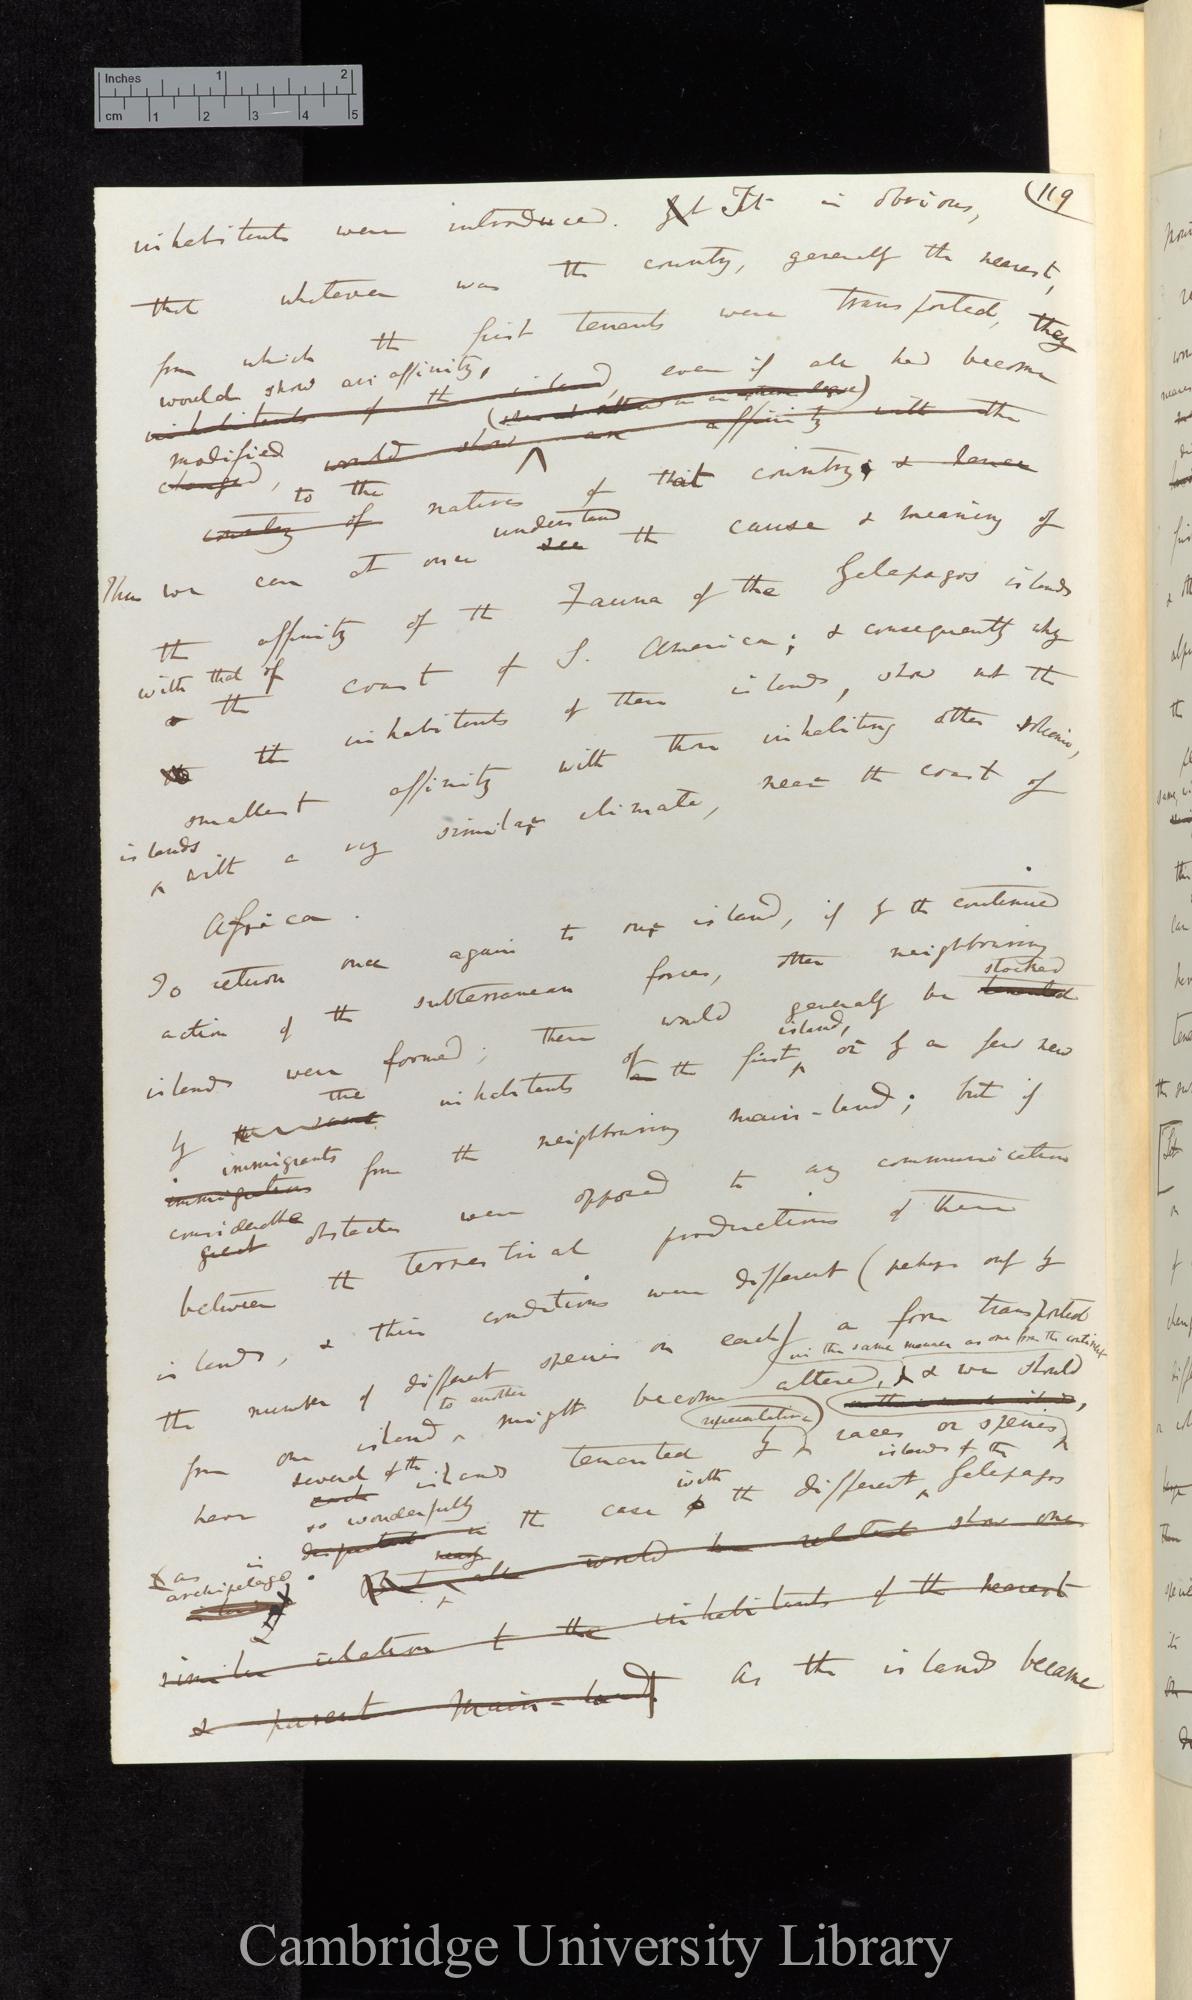 Inches 1 2
cm 1 2 3 4 5
(119
inhabitants were introduced. It is obvious,
that whatever was the country, generally the nearest,
from which the first tenants were transported, they
would show an affinity,
inhabitants of the island, even if all had become
modified
changed, would show an affinity with the
to the
country of natives of that country; & hence
understand
Thus we can at once see the cause & meaning of
the affinity of the Fauna of the Galapagos islands
with that of
the coast of S. America; & consequently why
the inhabitants of these islands, show not the
smallest affinity with those inhabiting other volcanic,
islands
with a very similar climate, near the coast of
Africa.
To return once again to our island, if by the continued
action of the subterranean forces, other neighbouring
stocked
islands were formed; these would generally be tenanted
the of island,
by inhabitants the first, or by a few new
immigrants
immigration from the neighbouring main-land; but if
considerable
great obstacles were opposed to any communication
between the terrestrial productions of these
islands, & their conditions were different (perhaps only by
the number of different species on each) a form transported
in the same manner as one from the continent
to another
from one island might become altered, & we should
representative
several of the
have each islands tenanted by races or species,
so wonderfully with islands of the
the case the different Galapagos
as in
archipelago.
But all would show one
similar relation to the inhabitants of the nearest
& parent main-land] As the islands became
Cambridge University Library